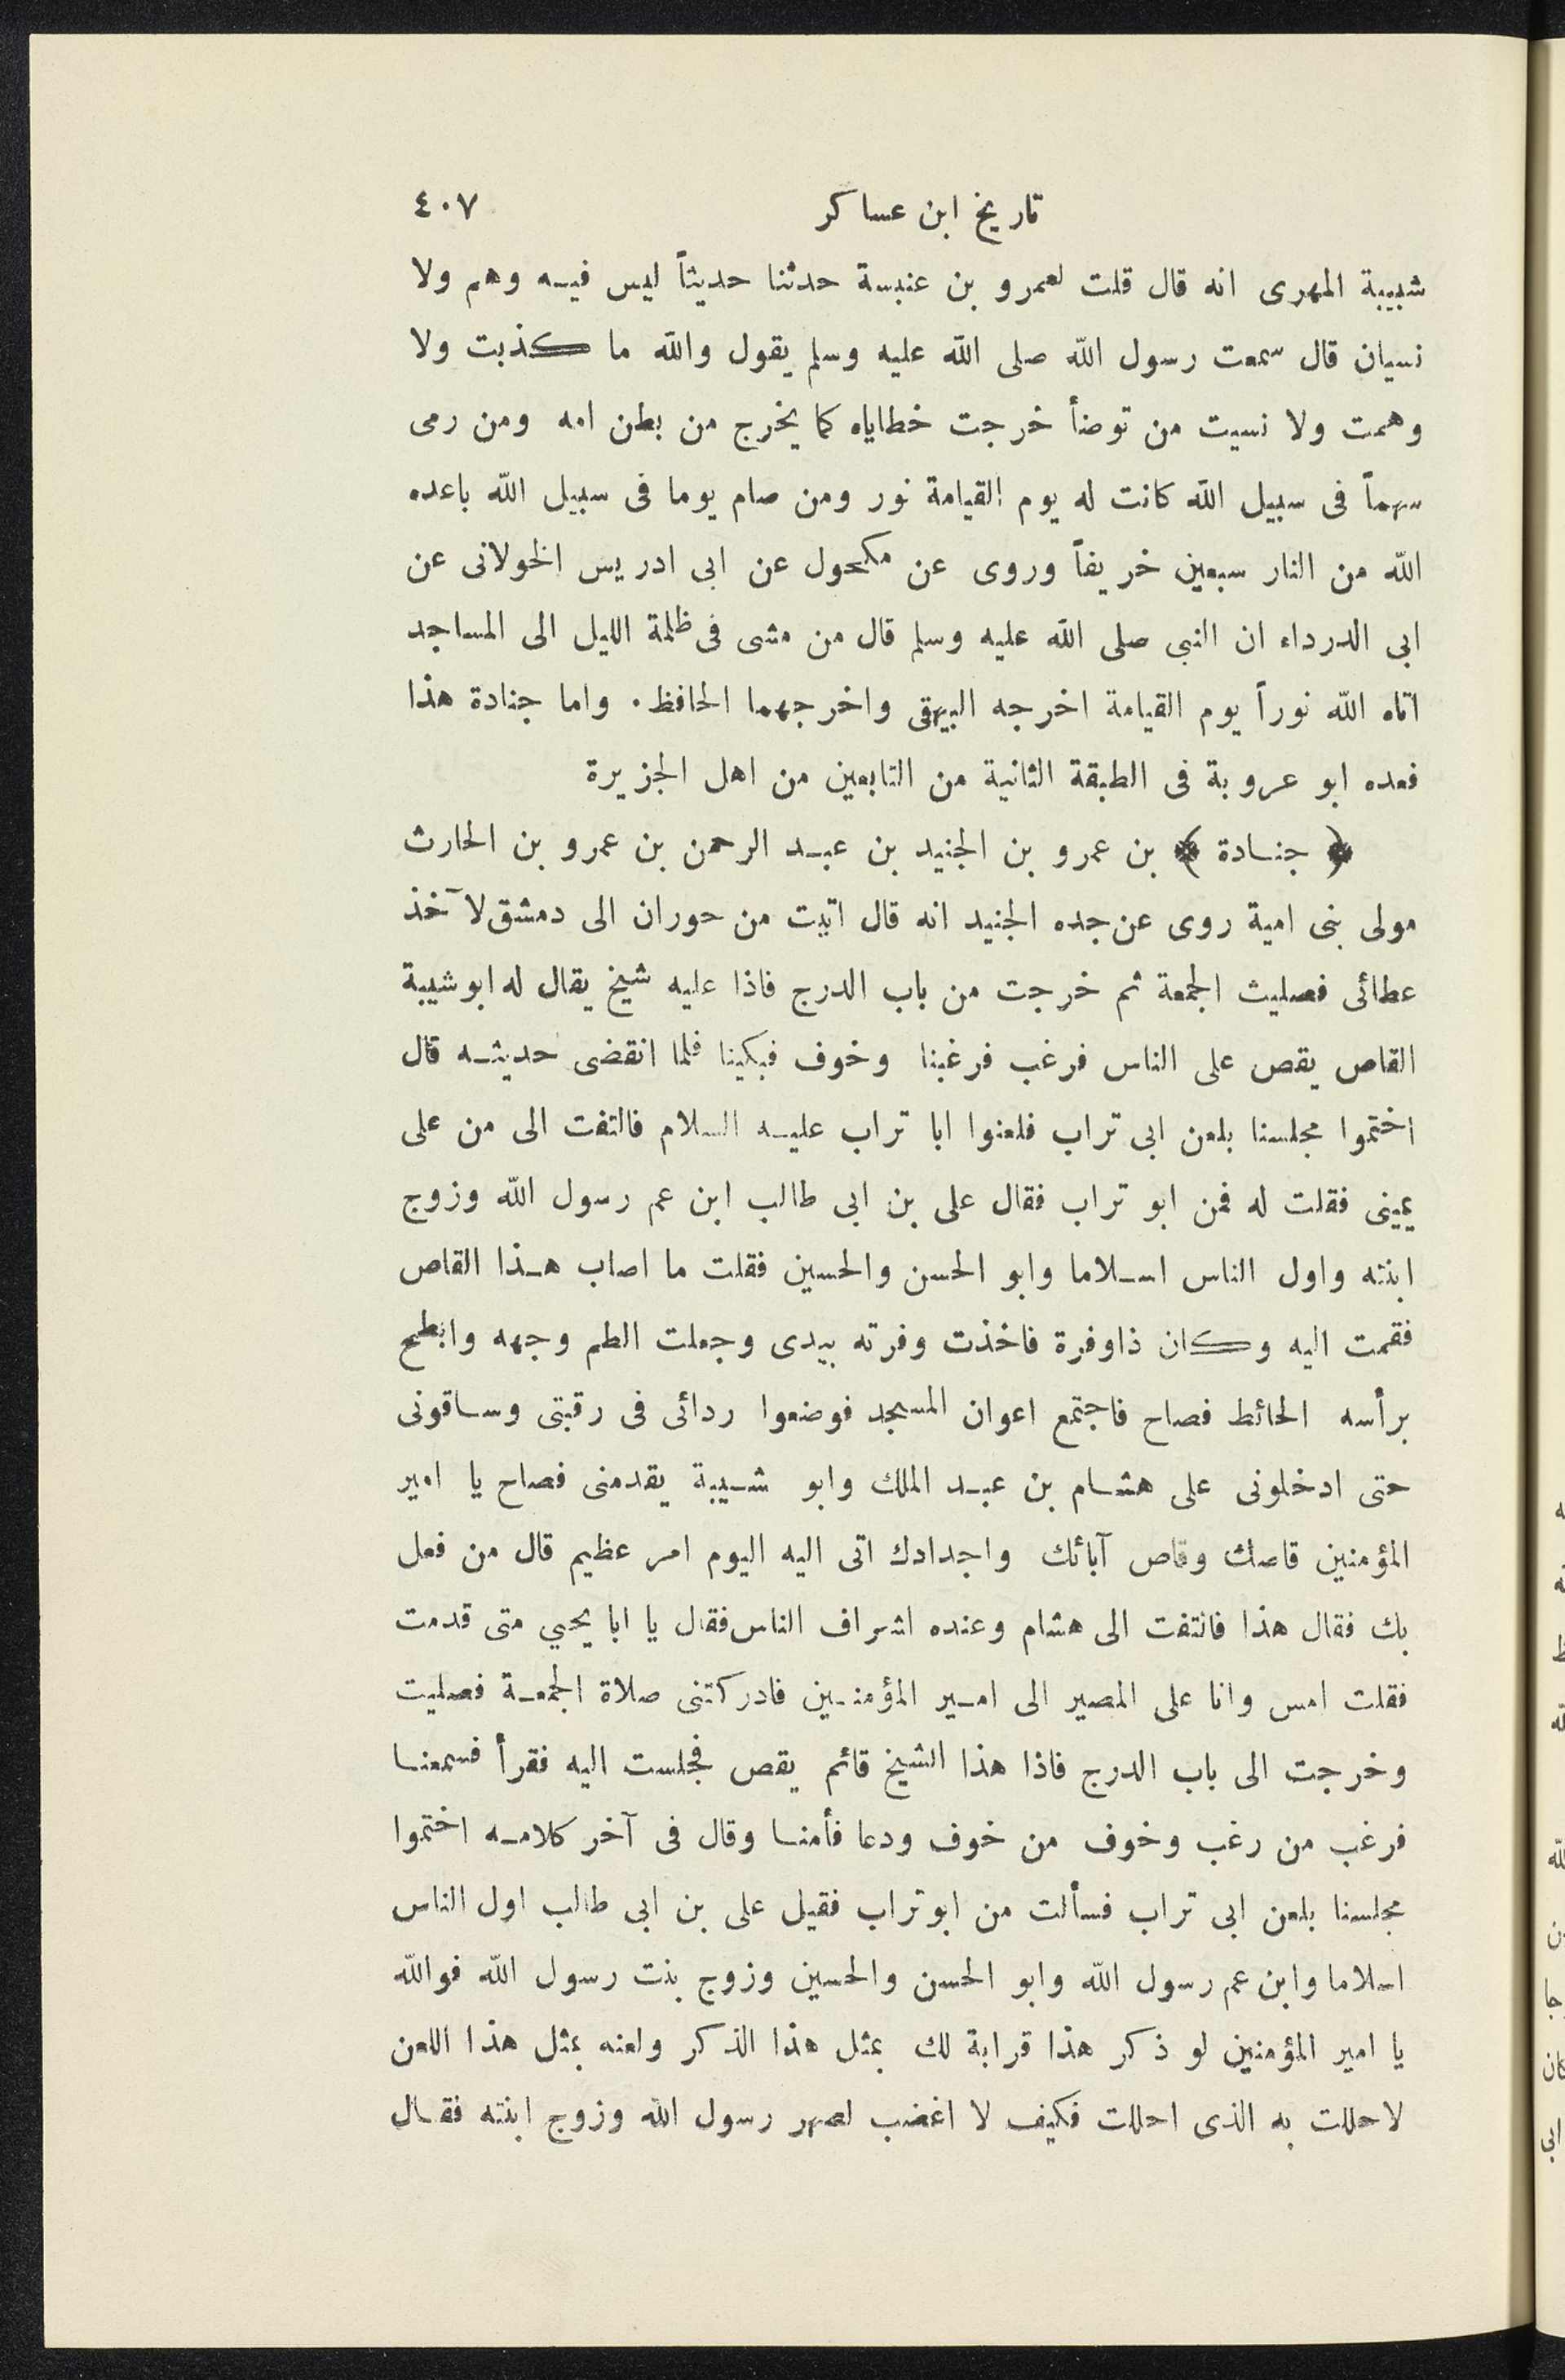 تاريخ ابن عساكر ٤٠٧
شبيبة المهرى انه قال قلت لعمرو بن عنبسة حدثنا حديثاً ليس فيه وهم ولا
نسيان قال سمعت رسول الله صلى الله عليه وسلم يقول والله ما كذبت ولا
وهمت ولا نسيت من توضأ خرجت خطاياه كما يخرج من بطن امه ومن رمى
سهماً فى سبيل الله كانت له يوم القيامة نور ومن صام يوما فى سبيل الله باعده
الله من النار سبعين خريفاً وروى عن مكحول عن ابى ادريس الخولانى عن
ابى الدرداء ان النبى صلى الله عليه وسلم قال من مشى فى ظلمة الليل الى المساجد
اتاه الله نوراً يوم القيامة اخرجه البيهقى واخرجهما الحافظ . واما جنادة هذا
فعده ابو عروبة فى الطبقة الثانية من التابعين من اهل الجزيرة
﴿ جنادة ﴾ بن عمرو بن الجنيد بن عبد الرحمن بن عمرو بن الحارث
مولى بنى امية روى عن جده الجنيد انه قال اتيت من حوران الى دمشق لآخذ
عطائى فصليث الجمعة ثم خرجت من باب الدرج فاذا عليه شيخ يقال له ابو شيبة
القاص يقص على الناس فرغب فرغبنا وخوف فبكينا فلما انقضى حديثه قال
اختموا مجلسنا بلعن ابى تراب فلعنوا ابا تراب عليه السلام فالتفت الى من على
يمينى فقلت له فمن ابو تراب فقال على بن ابى طالب ابن عم رسول الله وزوج
ابنته واول الناس اسلاما وابو الحسن والحسين فقلت ما اصاب هذا القاص
فقمت اليه وكان ذاوفرة فاخذت وفرته بيدى وجعلت الطم وجهه وابطح
برأسه الحائط فصاح فاجتمع اعوان المسجد فوضعوا ردائى فى رقبتى وساقونى
حتى ادخلونى على هشام بن عبد الملك وابو شيبة يقدمنى فصاح يا امير
المؤمنين قاصك وقاص آبائك واجدادك اتى اليه اليوم امر عظيم قال من فعل
بك فقال هذا فالتفت الى هشام وعنده اشراف الناس فقال يا ابا يحيي متى قدمت
فقلت امس وانا على المصير الى امير المؤمنين فادركتنى صلاة الجمعة فصليت
وخرجت الى باب الدرج فاذا هذا الشيخ قائم يقص فجلست اليه فقرأ فسمعنا
فرغب من رغب وخوف من خوف ودعا فأمنا وقال فى آخر كلامه اختموا
مجلسنا بلعن ابى تراب فسألت من ابو تراب فقيل على بن ابى طالب اول الناس
اسلاما وابن عم رسول الله وابو الحسن والحسين وزوج بنت رسول الله فوالله
يا امير المؤمنين لو ذكر هذا قرابة لك بمثل هذا الذكر ولعنه بمثل هذا اللعن
لاحللت به الذى احللت فكيف لا اغضب لصهر رسول الله وزوج ابنته فقال